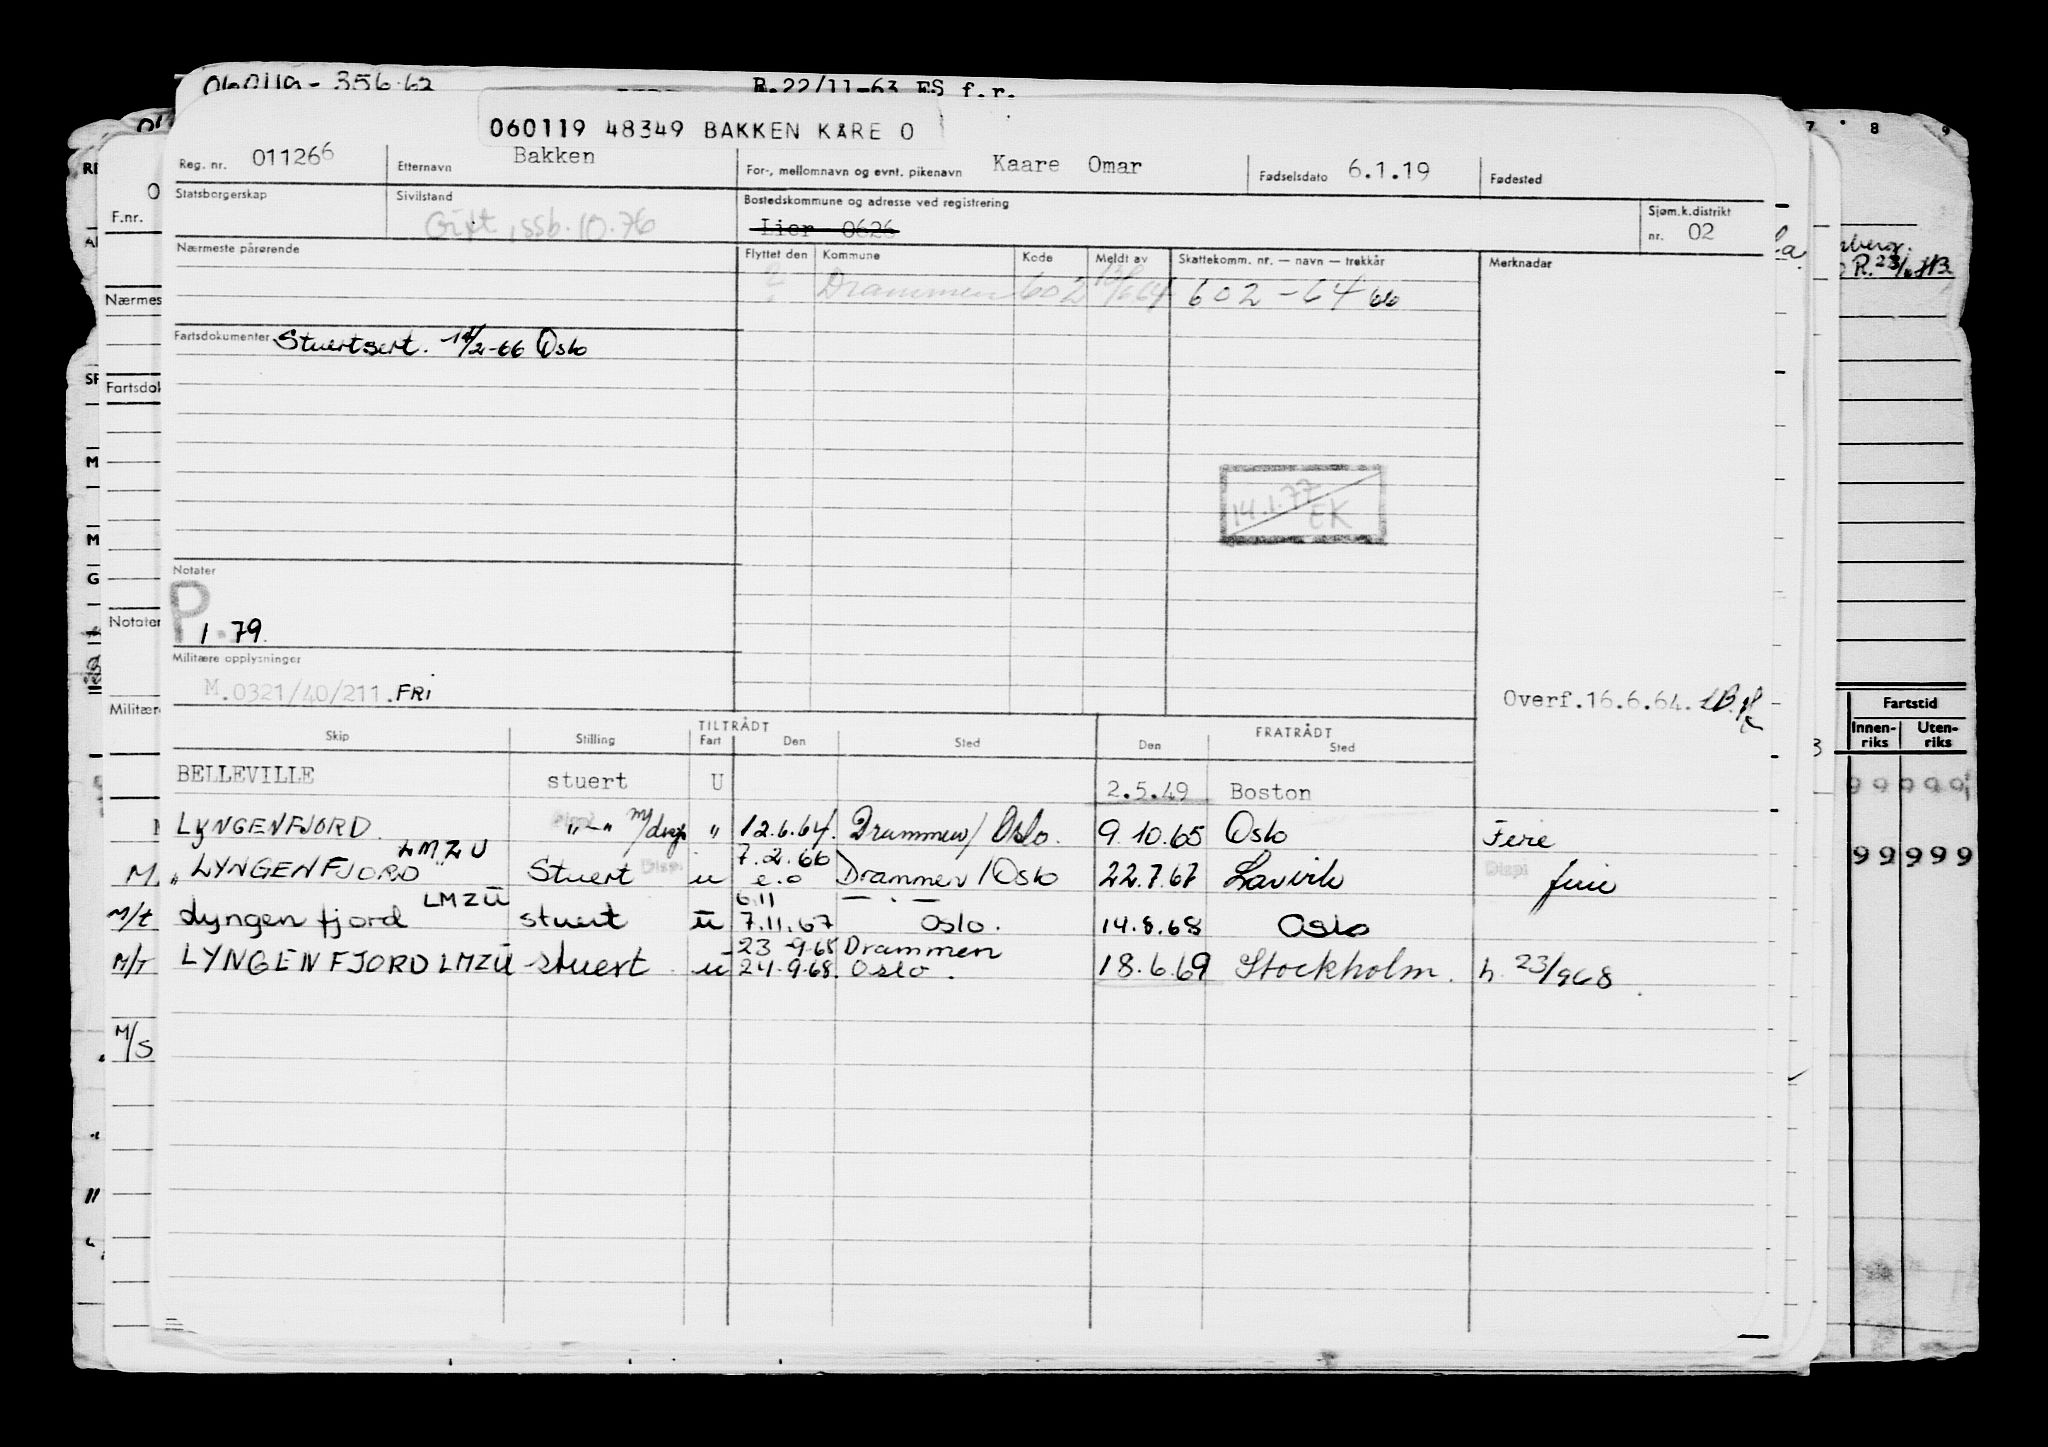 060119 - 356.62 R.22/11-63 ES f.r.
060119 48349 BAKKEN KÅRE O
Reg. nr. 011266 Etternavn Bakken For-, mellomnavn og evnt. pikenavn Kaare Omar Fødselsdato 6.1.19 Fødested
Statsborgerskap Sivilstand Gift, ssb. 10.76 Bostedskommune og adresse ved registrering Lier 0626 Sjøm.k.distrikt nr. 02
Nærmeste pårørende Flyttet den Kommune Kode Meldt av Skattekomm. nr. — navn — trekkår Merknadar
? Drammen 602 602 - 64 66
Fartsdokumenter Stuertsert. 14/2-66 Oslo
14.1.77 EK
Notater
P 1.79.
Militære opplysninger
M.0321/40/211. FRI
Overf.16.6.64.
TILTRÅDT FRATRÅDT
Skip Stilling Fart Den Sted Den Sted
BELLEVILLE stuert U 2.5.49 Boston
LYNGENFJORD. "-" m/disp " 12.6.64. Drammen/Oslo. 9.10.65 Oslo Ferie
M. "LYNGENFJORD" LMZU Stuert Disp. u 7.2.66 e.o Drammen/Oslo 22.7.67 Larvik Disp. ferie
M/t Lyngenfjord LMZU stuert u 6.11 7.11.67 — . — Oslo. 14.8.68 Oslo
M/T LYNGENFJORD LMZU stuert u 23-9-68 Drammen
24.9.68. Oslo. 18.6.69 Stockholm. h. 23/9 68
M/S
F.nr.
Nærmes
Fartsdok
Notater
Militær
R. 23/
7 8 9
Fartstid
Innen-riks Uten-riks
9 9 9 9 9
9 9 9 9 9